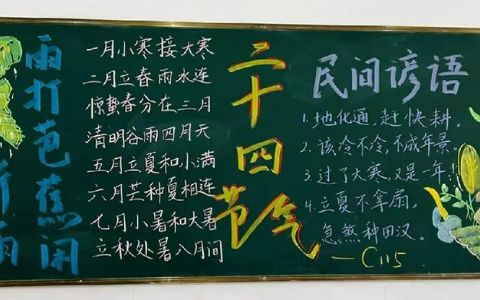 雨打芭蕉闲
听雨
一月小寒接大寒
二月立春雨水连
惊蛰春分在三月
清明谷雨四月天
五月立夏和小满
六月芒种夏相连
七月小暑和大暑
立秋处暑八月间
二十四节气
民间谚语
1.地化通,赶快耕。
2.该冷不冷,不成年景。
3.过了大寒,又是一年!
4.立夏不拿扇,
急煞种田汉。
—C115